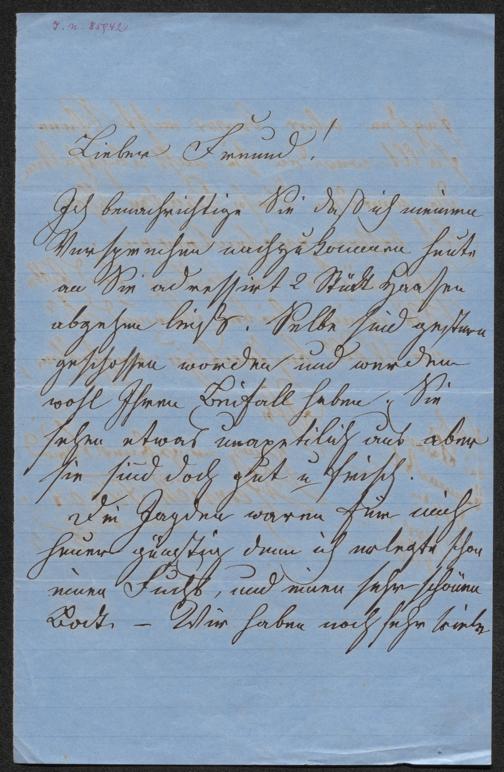 I. N. 85942
Lieber Freund!
Ich benachrichtige Sie daß ich meinem
Versprechen nachzukommen heute
an Sie adressirt 2 Stück Haasen
abgehen ließ. Selbe sind gestern
geschossen worden und werden
wohl Ihren Beifall haben; Sie
sehen etwas unapetitlich aus aber
sie sind doch gut u frisch.
Die Jagden waren für mich
heuer günstig denn ich erlegte schon
einen Fuchs, und einen sehr schönen
Bock. – Wir haben noch sehr viele